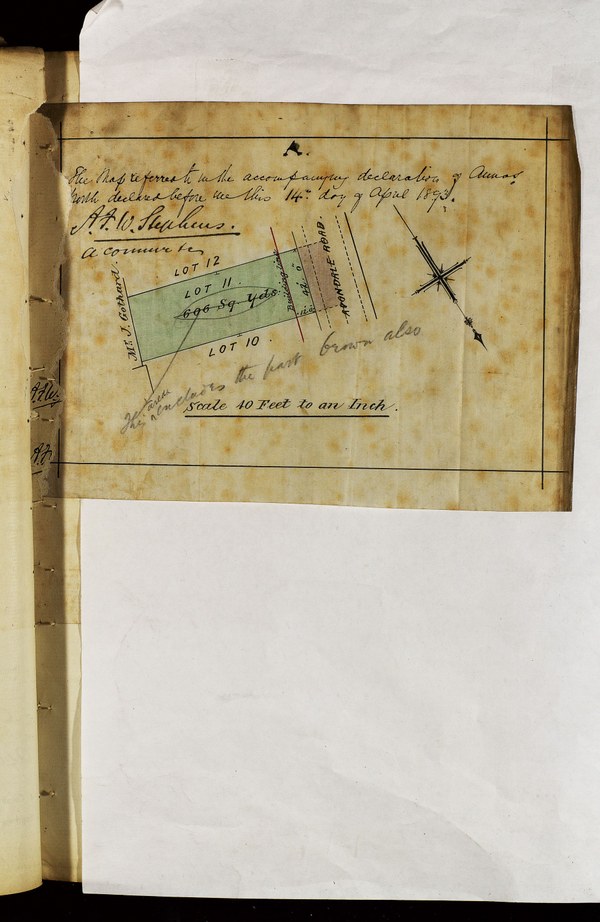 A.
The Map referred to in the accompanying declaration of Amos
North declared before me this 14th day of April 1893.
A. F. W. Stephens.
a Commr &c
Mr. J. Gothard.
LOT 12
LOT 11
696 Sq Yds
LOT 10.
Building line
42. 0
AVONDALE ROAD.
includes the part brown also
Scale 40 Feet to an Inch.